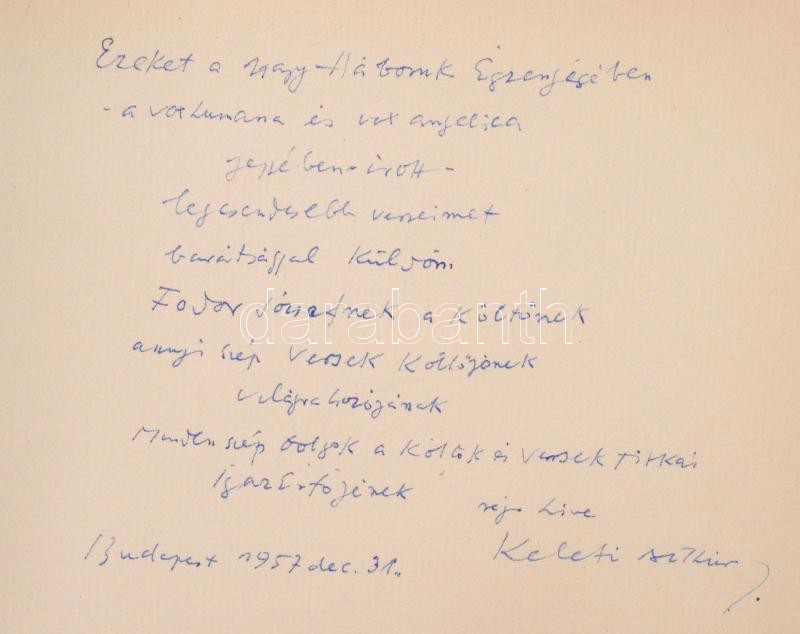 Ezeket a Nagy-Háboruk Égzengésében
- a vox humana és vox angelica
jegyében - irott -
legcsendesebb verseimet
barátsággal Küldöm
Fodor Józsefnek a Költőnek
annyi szép Versek Költőjének
világrahozójának
Minden szép dolgok a Költők és Versek titkai
Igaz Értőjének
régi hive
Keleti Arthur
Budapest 1957 dec. 31.
darabanth